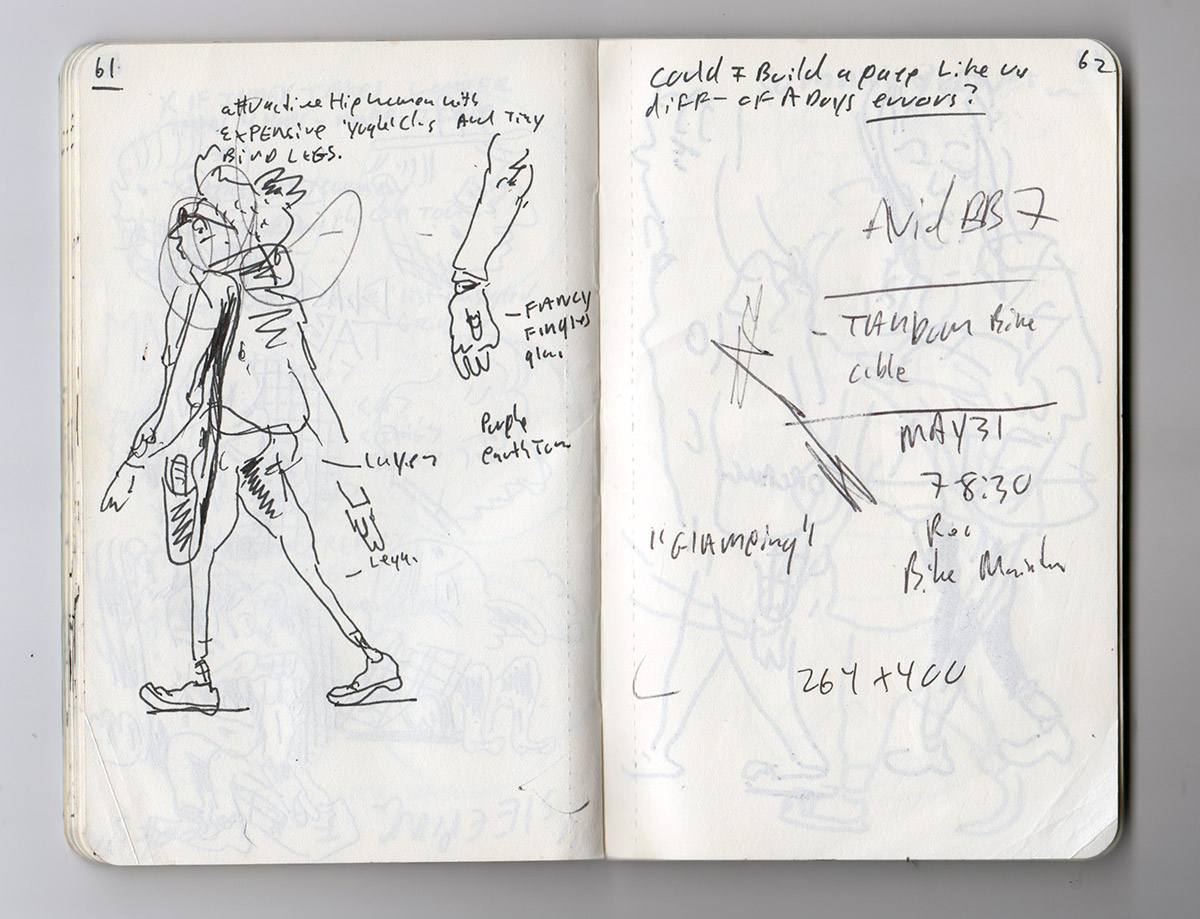 61
attractive Hip woman with
EXPENSIVE Yoga And Tiny
BIRD LEGS.
- FANCY
Fingers
Purple
earthTone
Layer
62
Could I Build a page Like
diff- of A DAYS errors?
Avid BB7
- TANDOM Bike
cable
MAY 31
7 8:30
Bike
"GlAMping"
264 + 400